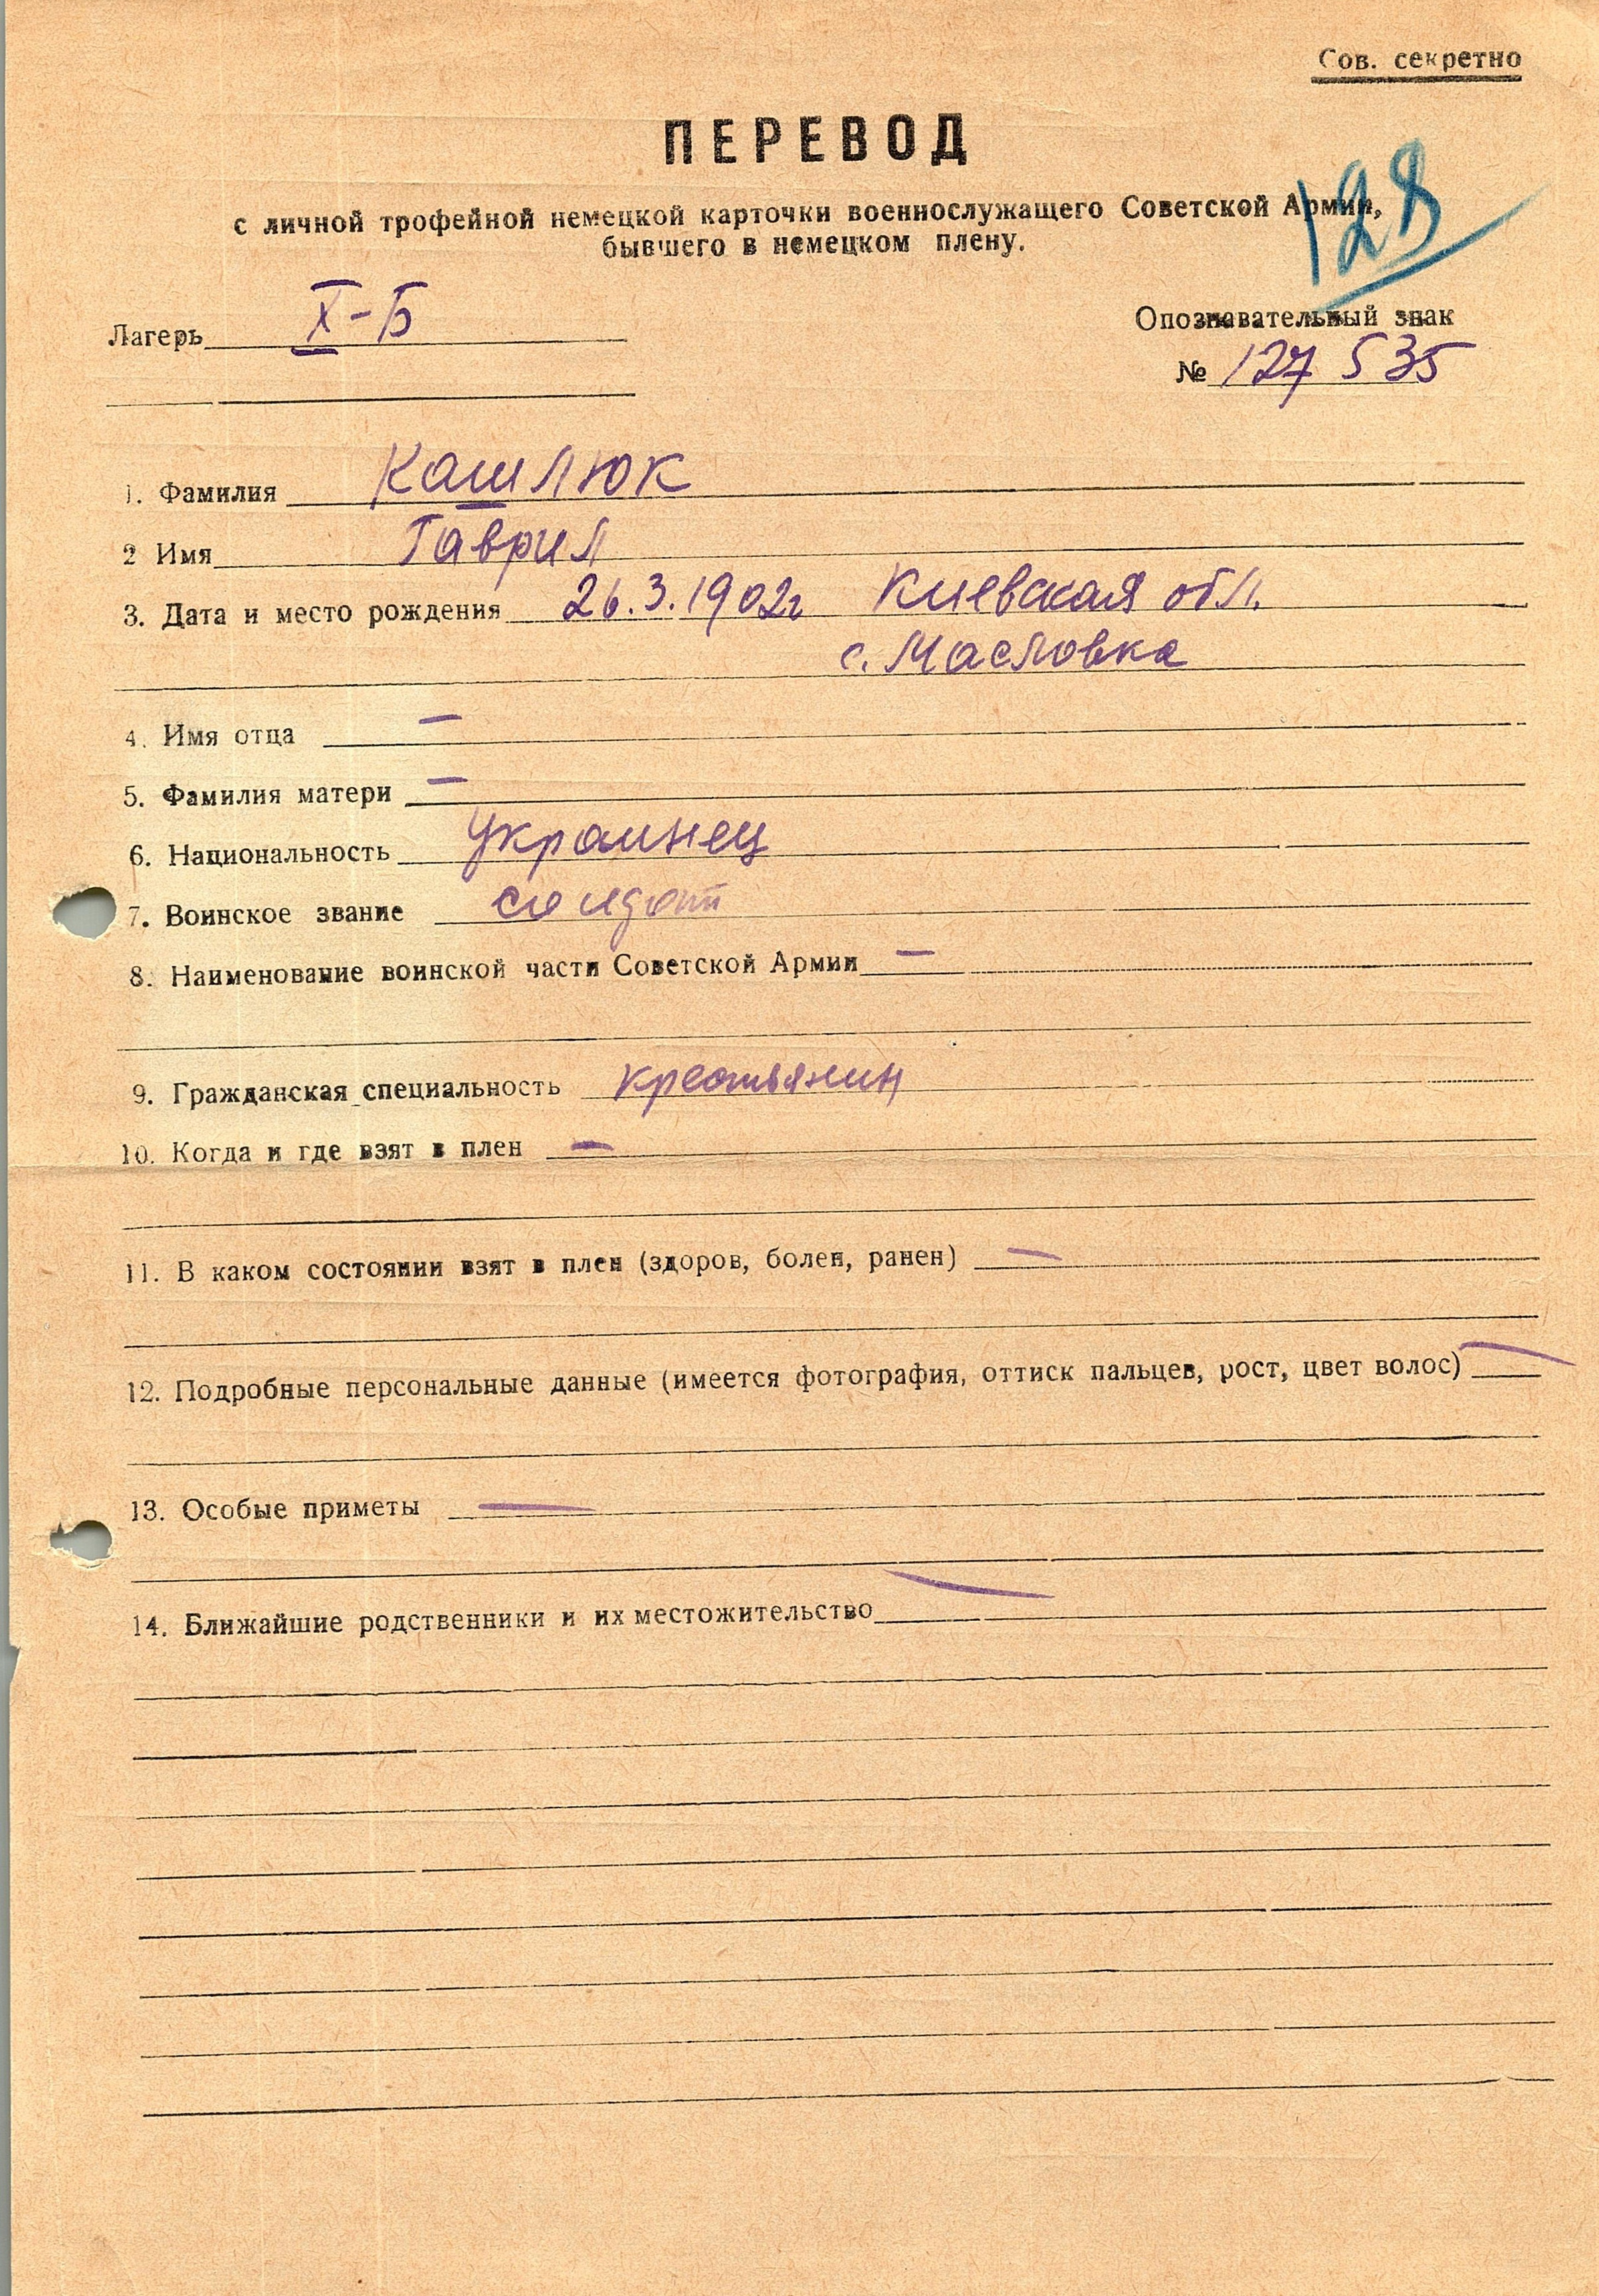 Сов. секретно
ПЕРЕВОД
128
с личной трофейной немецкой карточки военнослужащего Советской Армии,
бывшего в немецком плену.
Лагерь X-Б
Опознавательный знак
№ 127 535
1. Фамилия Кашлюк
2 Имя Гаврил
3. Дата и место рождения 26.3.1902г Киевская обл.
с. Масловка
4. Имя отца –
5. Фамилия матери –
6. Национальность украинец
7. Воинское звание солдат
8. Наименование воинской части Советской Армии –
9. Гражданская специальность крестьянин
10. Когда и где взят в плен –
11. В каком состоянии взят в плен (здоров, болен, ранен) –
12. Подробные персональные данные (имеется фотография, оттиск пальцев, рост, цвет волос) –
13. Особые приметы –
14. Ближайшие родственники и их местожительство –